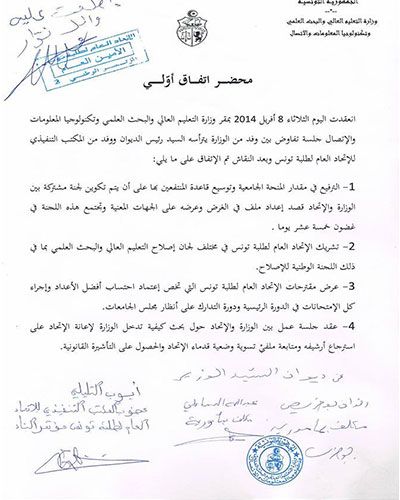 الجمهورية التونسية
وزارة التعليم العالي والبحث العلمي
وتكنولوجيا المعلومات والاتصال
اطلعت عليه
الإتحاد العام لطلبة تونس
الأمين العام
محضر اتفاق أوّلي
انعقدت اليوم الثلاثاء 8 أفريل 2014 بمقر وزارة التعليم العالي والبحث العلمي وتكنولوجيا المعلومات
والإتصال جلسة تفاوض بين وفد من الوزارة يترأسه السيد رئيس الديوان ووفد من المكتب التنفيذي
للإتحاد العام لطلبة تونس وبعد النقاش تم الإتفاق على ما يلي:
1– الترفيع في مقدار المنحة الجامعية وتوسيع قاعدة المنتفعين بها على أن يتم تكوين لجنة مشتركة بين
الوزارة والإتحاد قصد إعداد ملف في الغرض وعرضه على الجهات المعنية وتجتمع هذه اللجنة في
غضون خمسة عشر يوما .
2– تشريك الإتحاد العام لطلبة تونس في مختلف لجان إصلاح التعليم العالي والبحث العلمي بما في
ذلك اللجنة الوطنية للإصلاح.
3– عرض مقترحات الإتحاد العام لطلبة تونس التي تخص إعتماد احتساب أفضل الأعداد وإجراء
كل الإمتحانات في الدورة الرئيسية ودورة التدارك على أنظار مجلس الجامعات.
4– عقد جلسة عمل بين الوزارة والإتحاد حول بحث كيفية تدخل الوزارة لإعانة الإتحاد على
استرجاع أرشيفه ومتابعة ملفيّ تسوية وضعية قدماء الإتحاد والحصول على التأشيرة القانونية.
عن ديوان السيّد الوزير
أيوب التليلي
عضو المكتب التنفيذي للاتحاد
العام لطلبة تونس
مكلف بمأمورية
مكلف بمأمورية